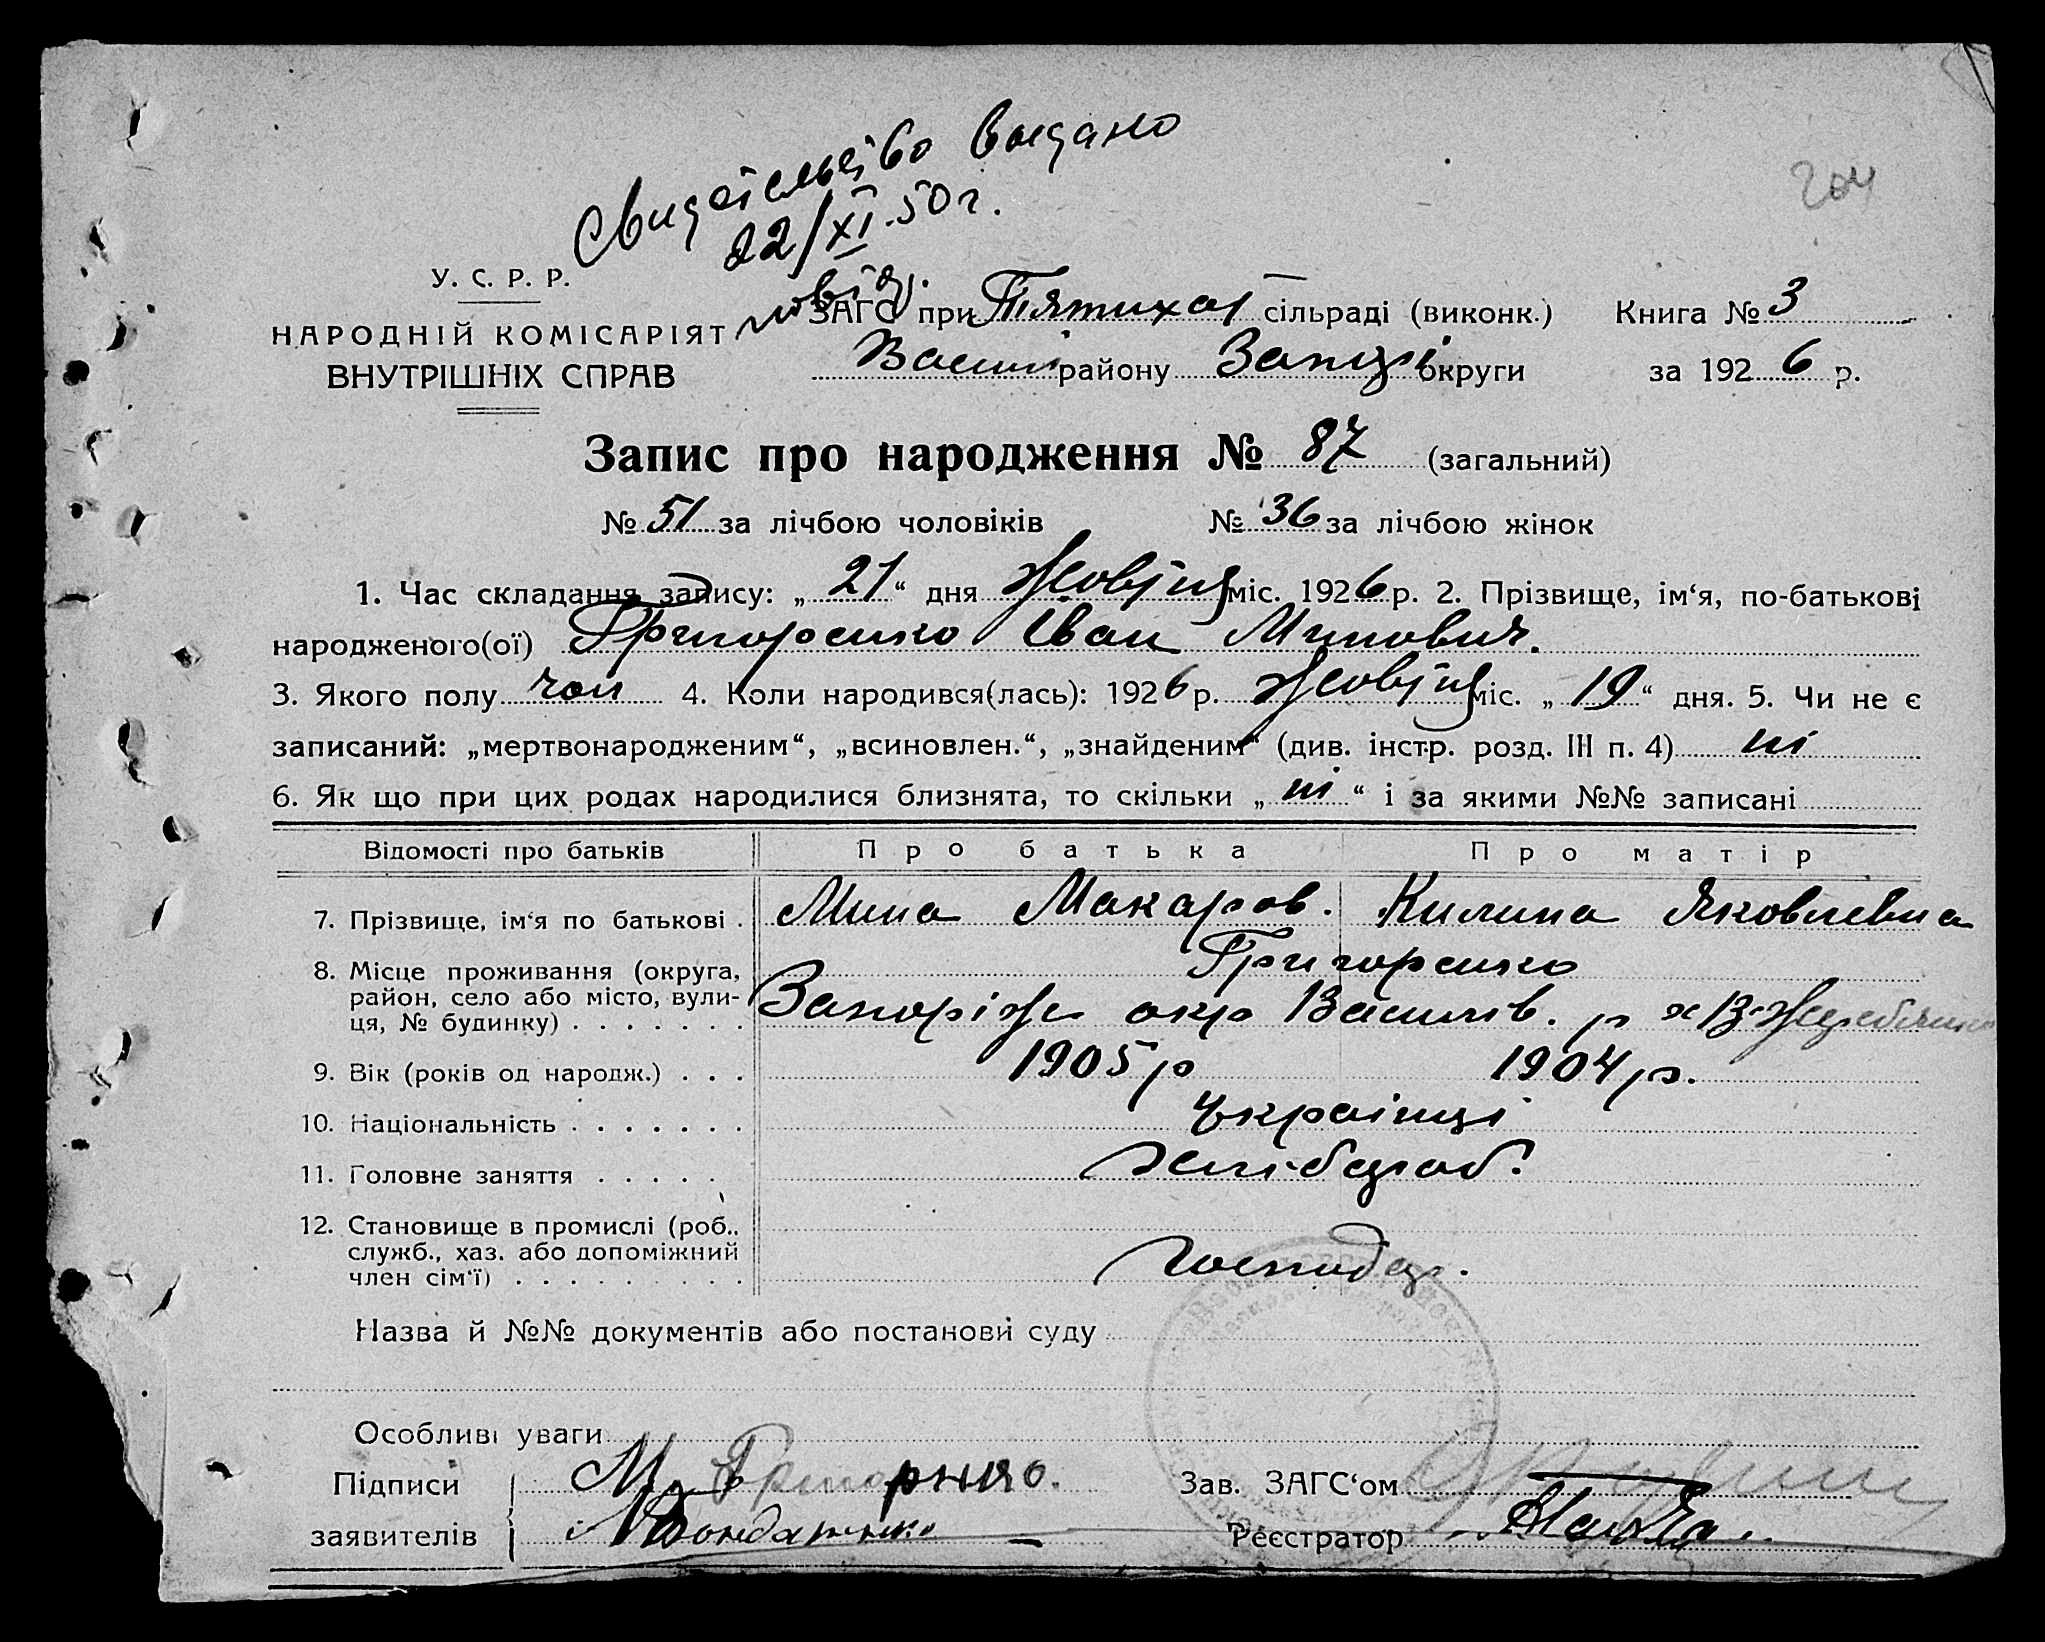 Свидетельство выдано
22/XI.50 г.
204
У. С. Р. Р.
ЗАГС при Пятихат сільраді (виконк.) Книга № 3
НАРОДНІЙ КОМІСАРІЯТ
ВНУТРІШНІХ СПРАВ
Васил району округи за 1926 р.
Запис про народження № 87 (загальний)
№ 51 за лічбою чоловіків № 36 за лічбою жінок
1. Час складання запису: „21“ дня Жовтня міс. 1926 р. 2. Прізвище, ім‘я, по-батькові
народженого(ої) Григоренко Іван Минович.
3. Якого полу чол 4. Коли народився(лась): 1926 р. Жовтня міс. „19“ дня. 5. Чи не є
записаний: „мертвонародженим“, „всиновлен.“, „знайденим“ (див. інстр. розд. III п. 4) ні
6. Як що при цих родах народилися близнята, то скільки „ні“ і за якими №№ записані
Відомості про батьків Про батька Про матір
7. Прізвище, ім‘я по батькові . Мина Макаров. Килина Яковлевна
Григоренко
8. Місце проживання (округа,
район, село або місто, вули-
ця, № будинку) . . . . . . . Запоріж окр Василів. р
9. Вік (років од народж.) . . . 1905 р 1904 р.
10. Національність . . . . . . . Українці
11. Головне заняття . . . . . Хлібороб.
12. Становище в промислі (роб.,
служб., хаз. або допоміжний
член сім‘ї) . . . . . . . . . Господар.
Назва й №№ документів або постанови суду
Особливі уваги
Підписи М. Зав. ЗАГС‘ом
заявителів Реєстратор